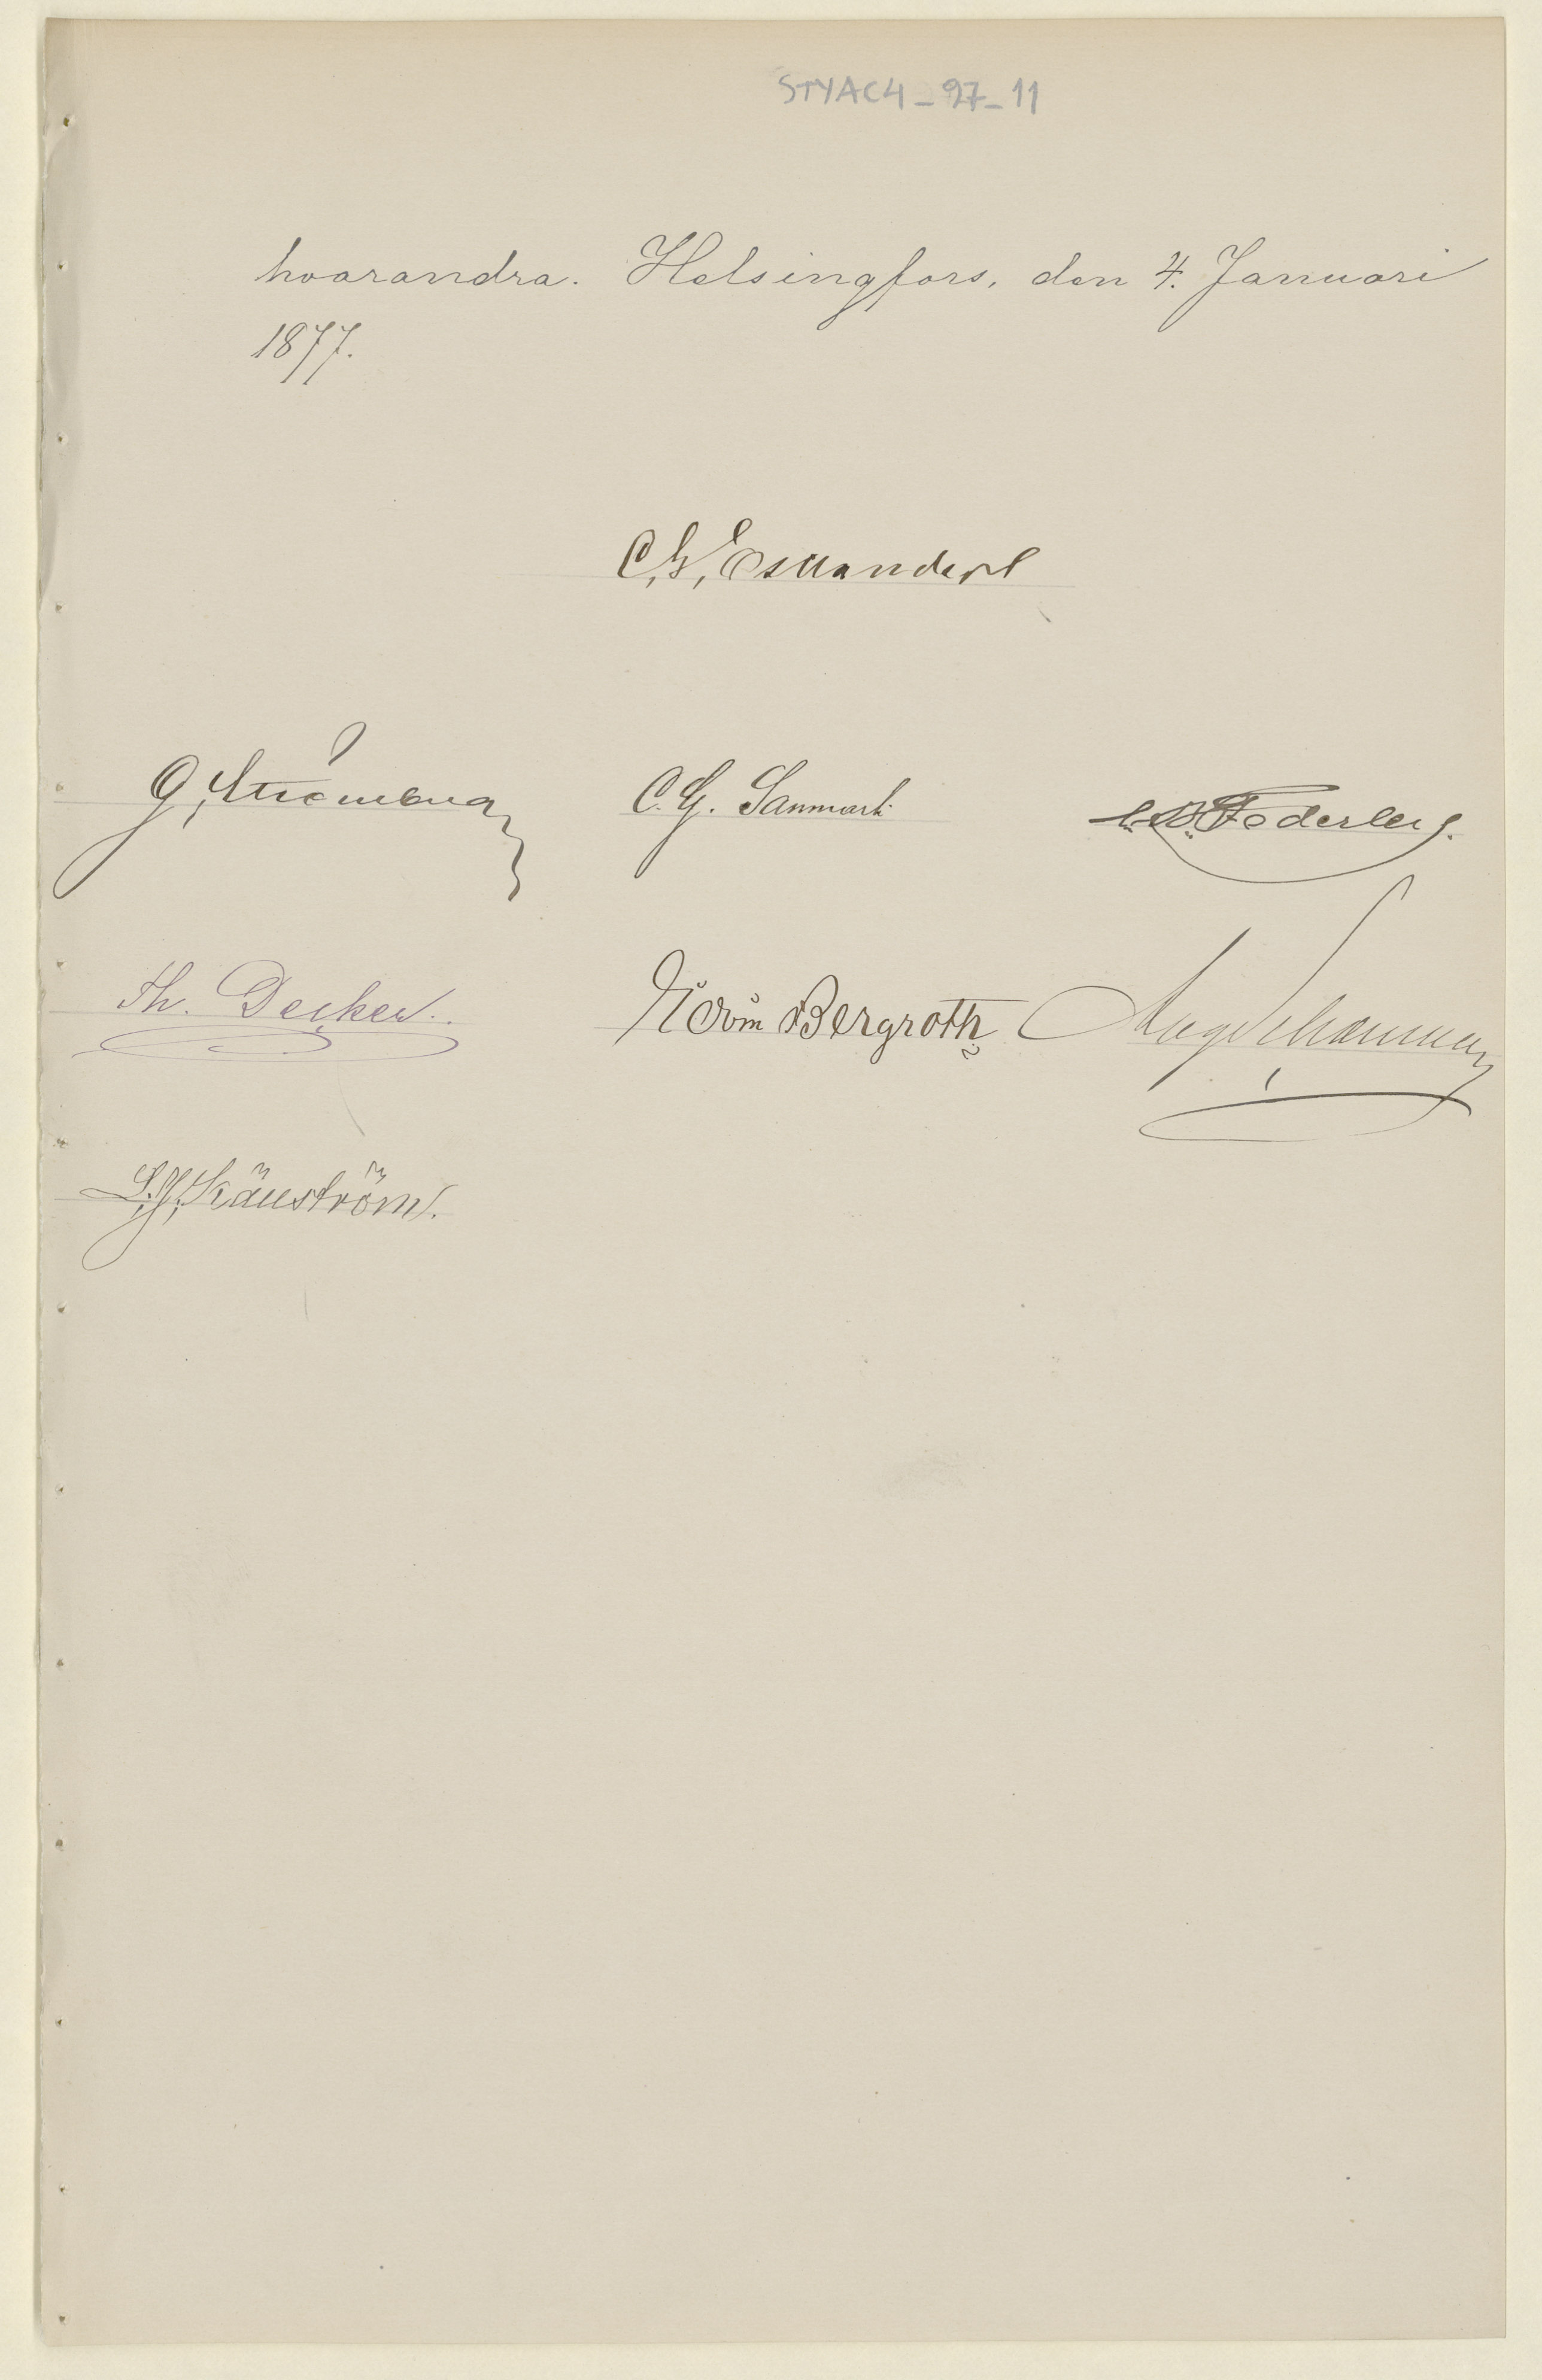 STYAC4_27_11
hvarandra. Helsingfors, den 4. Januari
1877.
C. G. Estlander
G. Strömberg
C. G. Sanmark
C. A. Federley.
Th. Decker.
Edvin Bergroth
Aug. Schauman